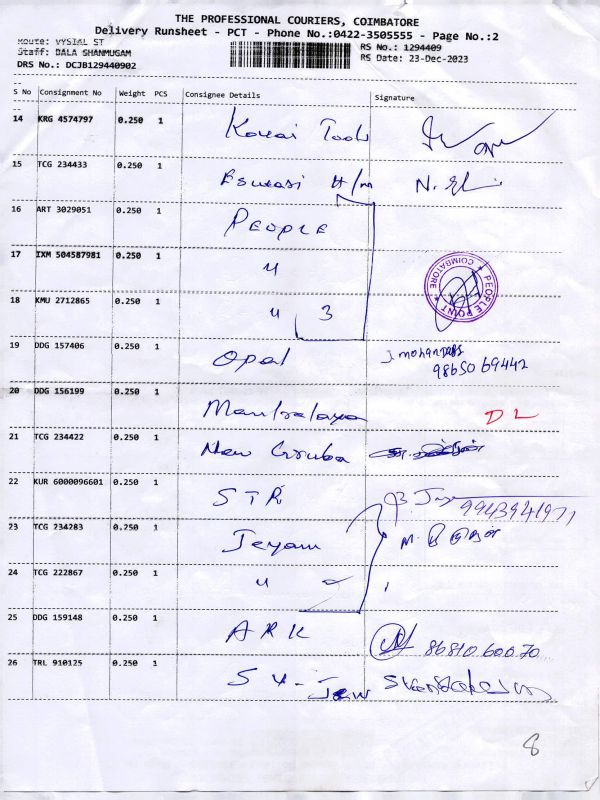 THE PROFESSIONAL COURIERS, COIMBATORE
Delivery Runsheet - PCT - Phone No.:0422-3505555 - Page No.:2
Route: VYSIAL ST
Staff: BALA SHANMUGAM
DRS No.: DCJB129440902
RS No.: 1294409
RS Date: 23-Dec-2023
S No Consignment No Weight PCS Consignee Details Signature
14 KRG 4574797 0.250 1 Kovai Tools
15 TCG 234433 0.250 1 H/m N.
16 ART 3029051 0.250 1 PEOPLE
17 IXM 504587981 0.250 1 "
PEOPLE POINT COIMBATORE
18 KMU 2712865 0.250 1 " 3
19 DDG 157406 0.250 1 Opal J. mohandass
98650 69442
20 DDG 156199 0.250 1 DL
21 TCG 234422 0.250 1 New
22 KUR 6000096601 0.250 1 STR
9943941971
23 TCG 234283 0.250 1 Jeyam M.
24 TCG 222867 0.250 1 "
25 DDG 159148 0.250 1 ARK 86810 60070
26 TRL 910125 0.250 1 S V - Jew
8